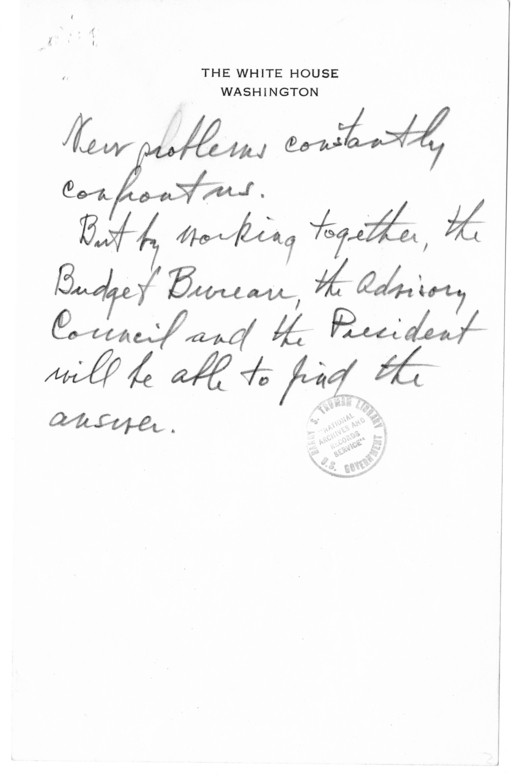 THE WHITE HOUSE
WASHINGTON
New problems constantly
confront us.
But by working together, the
Budget Bureau, the Advisory
Council and the President
will be able to find the
answer.
HARRY S. TRUMAN LIBRARY
"NATIONAL
ARCHIVES AND
RECORDS
SERVICE"
U.S. GOVERNMENT